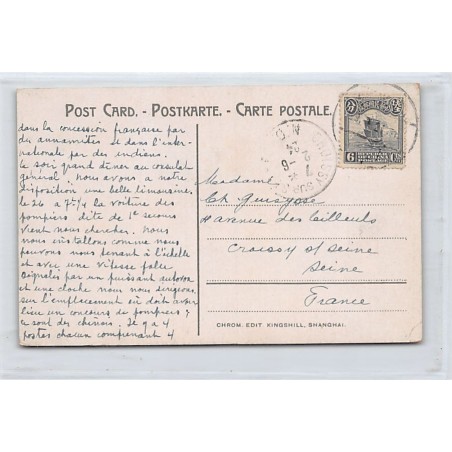 POST CARD. - POSTKARTE. - CARTE POSTALE.
dans la concession française par
des annamites et dans l'inter-
nationale par des indiens.
le soir grand dîner au consulat
général. Nous avons a notre
disposition une belle limousine.
le 26 a 7h/4 la voiture des
pompiers dite de 1e secours
vient nous chercher. Nous
nous installons comme nous
pouvons nous tenant à l'échelle
et avec une vitesse folle
signalés par un puissant
et une cloche nous nous dirigeons
sur l'emplacement où doit avoir
lieu un concours de pompiers
ce sont des chinois. Il y a 4
postes chacun comprenant 4
Madame
Ch
4 avenue des Tilleuls
Croissy s/ Seine
Seine
France
6
CHROM. EDIT KINGSHILL, SHANGHAI.